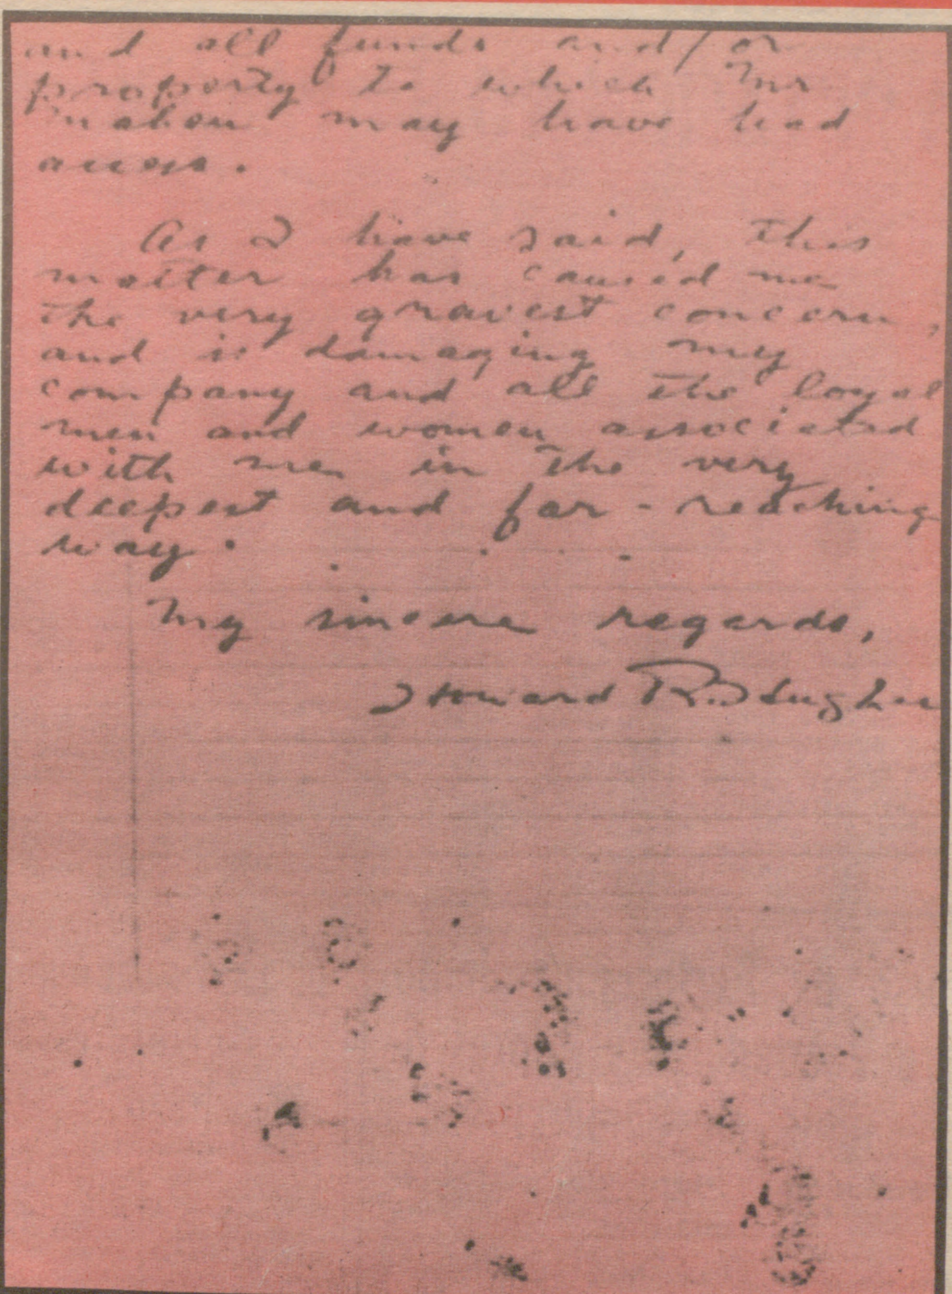 and all funds and/or
property to which Mr.
Maheu may have had
access.
As I have said, this
matter has caused me
the very gravest concern,
and is damaging my
company and all the loyal
men and women associated
with me in the very
deepest and far-reaching
way.
My sincere regards,
Howard R. Hughes